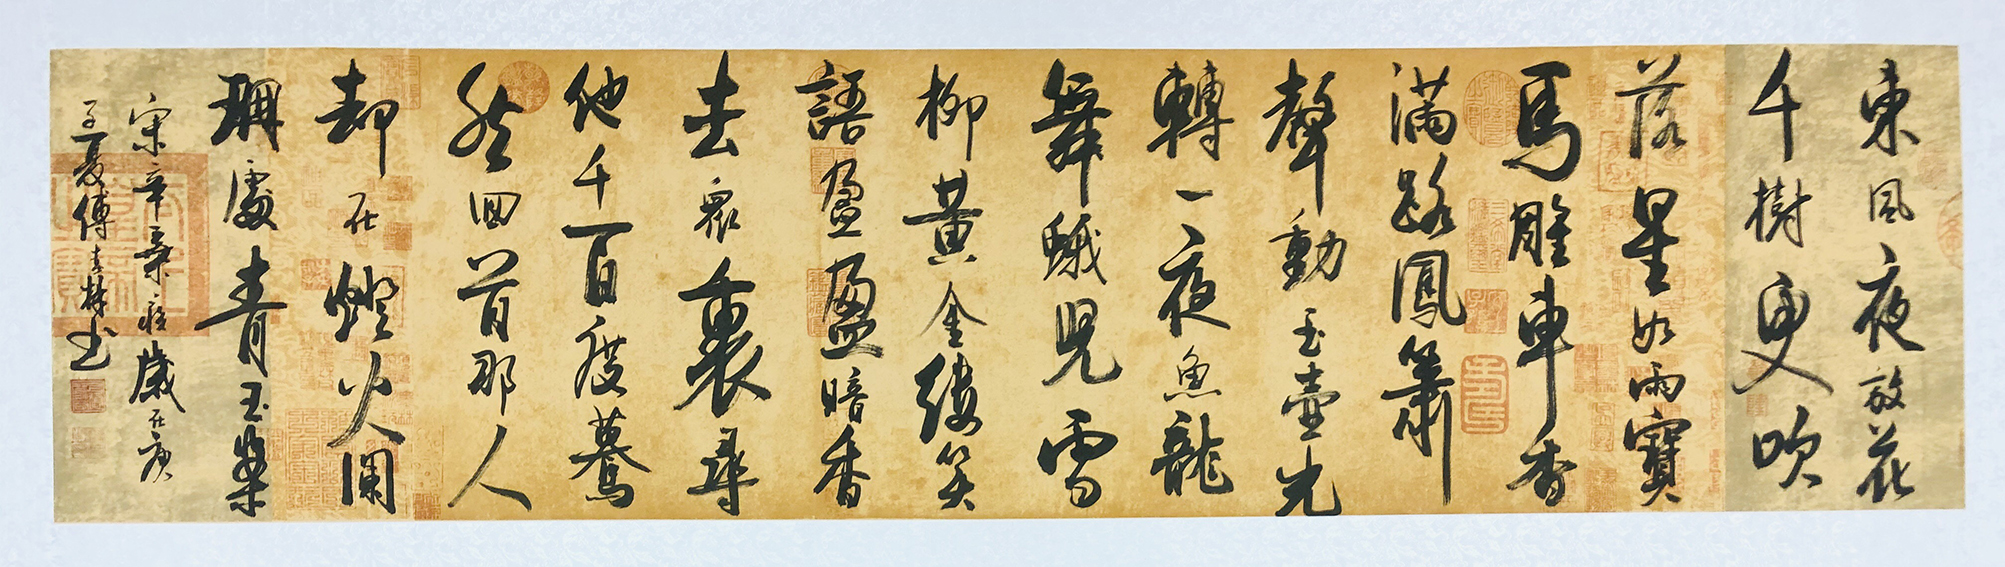 東風夜放花
千樹更吹
落星如雨寶
馬雕車香
滿路鳳簫
聲動玉壺光
轉一夜魚龍
舞蛾兒雪
柳黃金縷笑
語盈盈暗香
去衆裏尋
他千百度驀
然回首那人
却在燈火闌
珊處青玉案
宋辛棄疾歲在庚
子夏傅林书